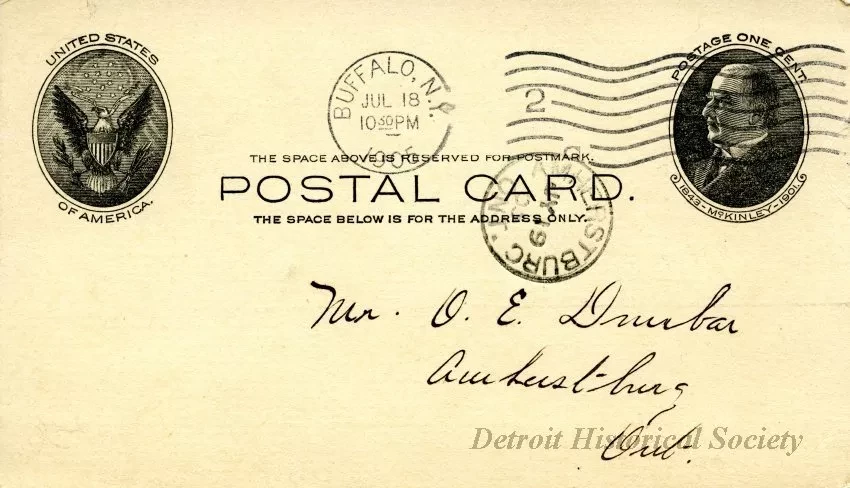 UNITED STATES
OF AMERICA.
BUFFALO, N.Y.
JUL 18
10 30 PM
1905
2
POSTAGE ONE CENT.
1843-McKINLEY-1901.
THE SPACE ABOVE IS RESERVED FOR POSTMARK.
POSTAL CARD.
THE SPACE BELOW IS FOR THE ADDRESS ONLY.
AMHERSTBURG
ONT
19
Mr. O. E. Dunbar
Amherstburg
Ont.
Detroit Historical Society